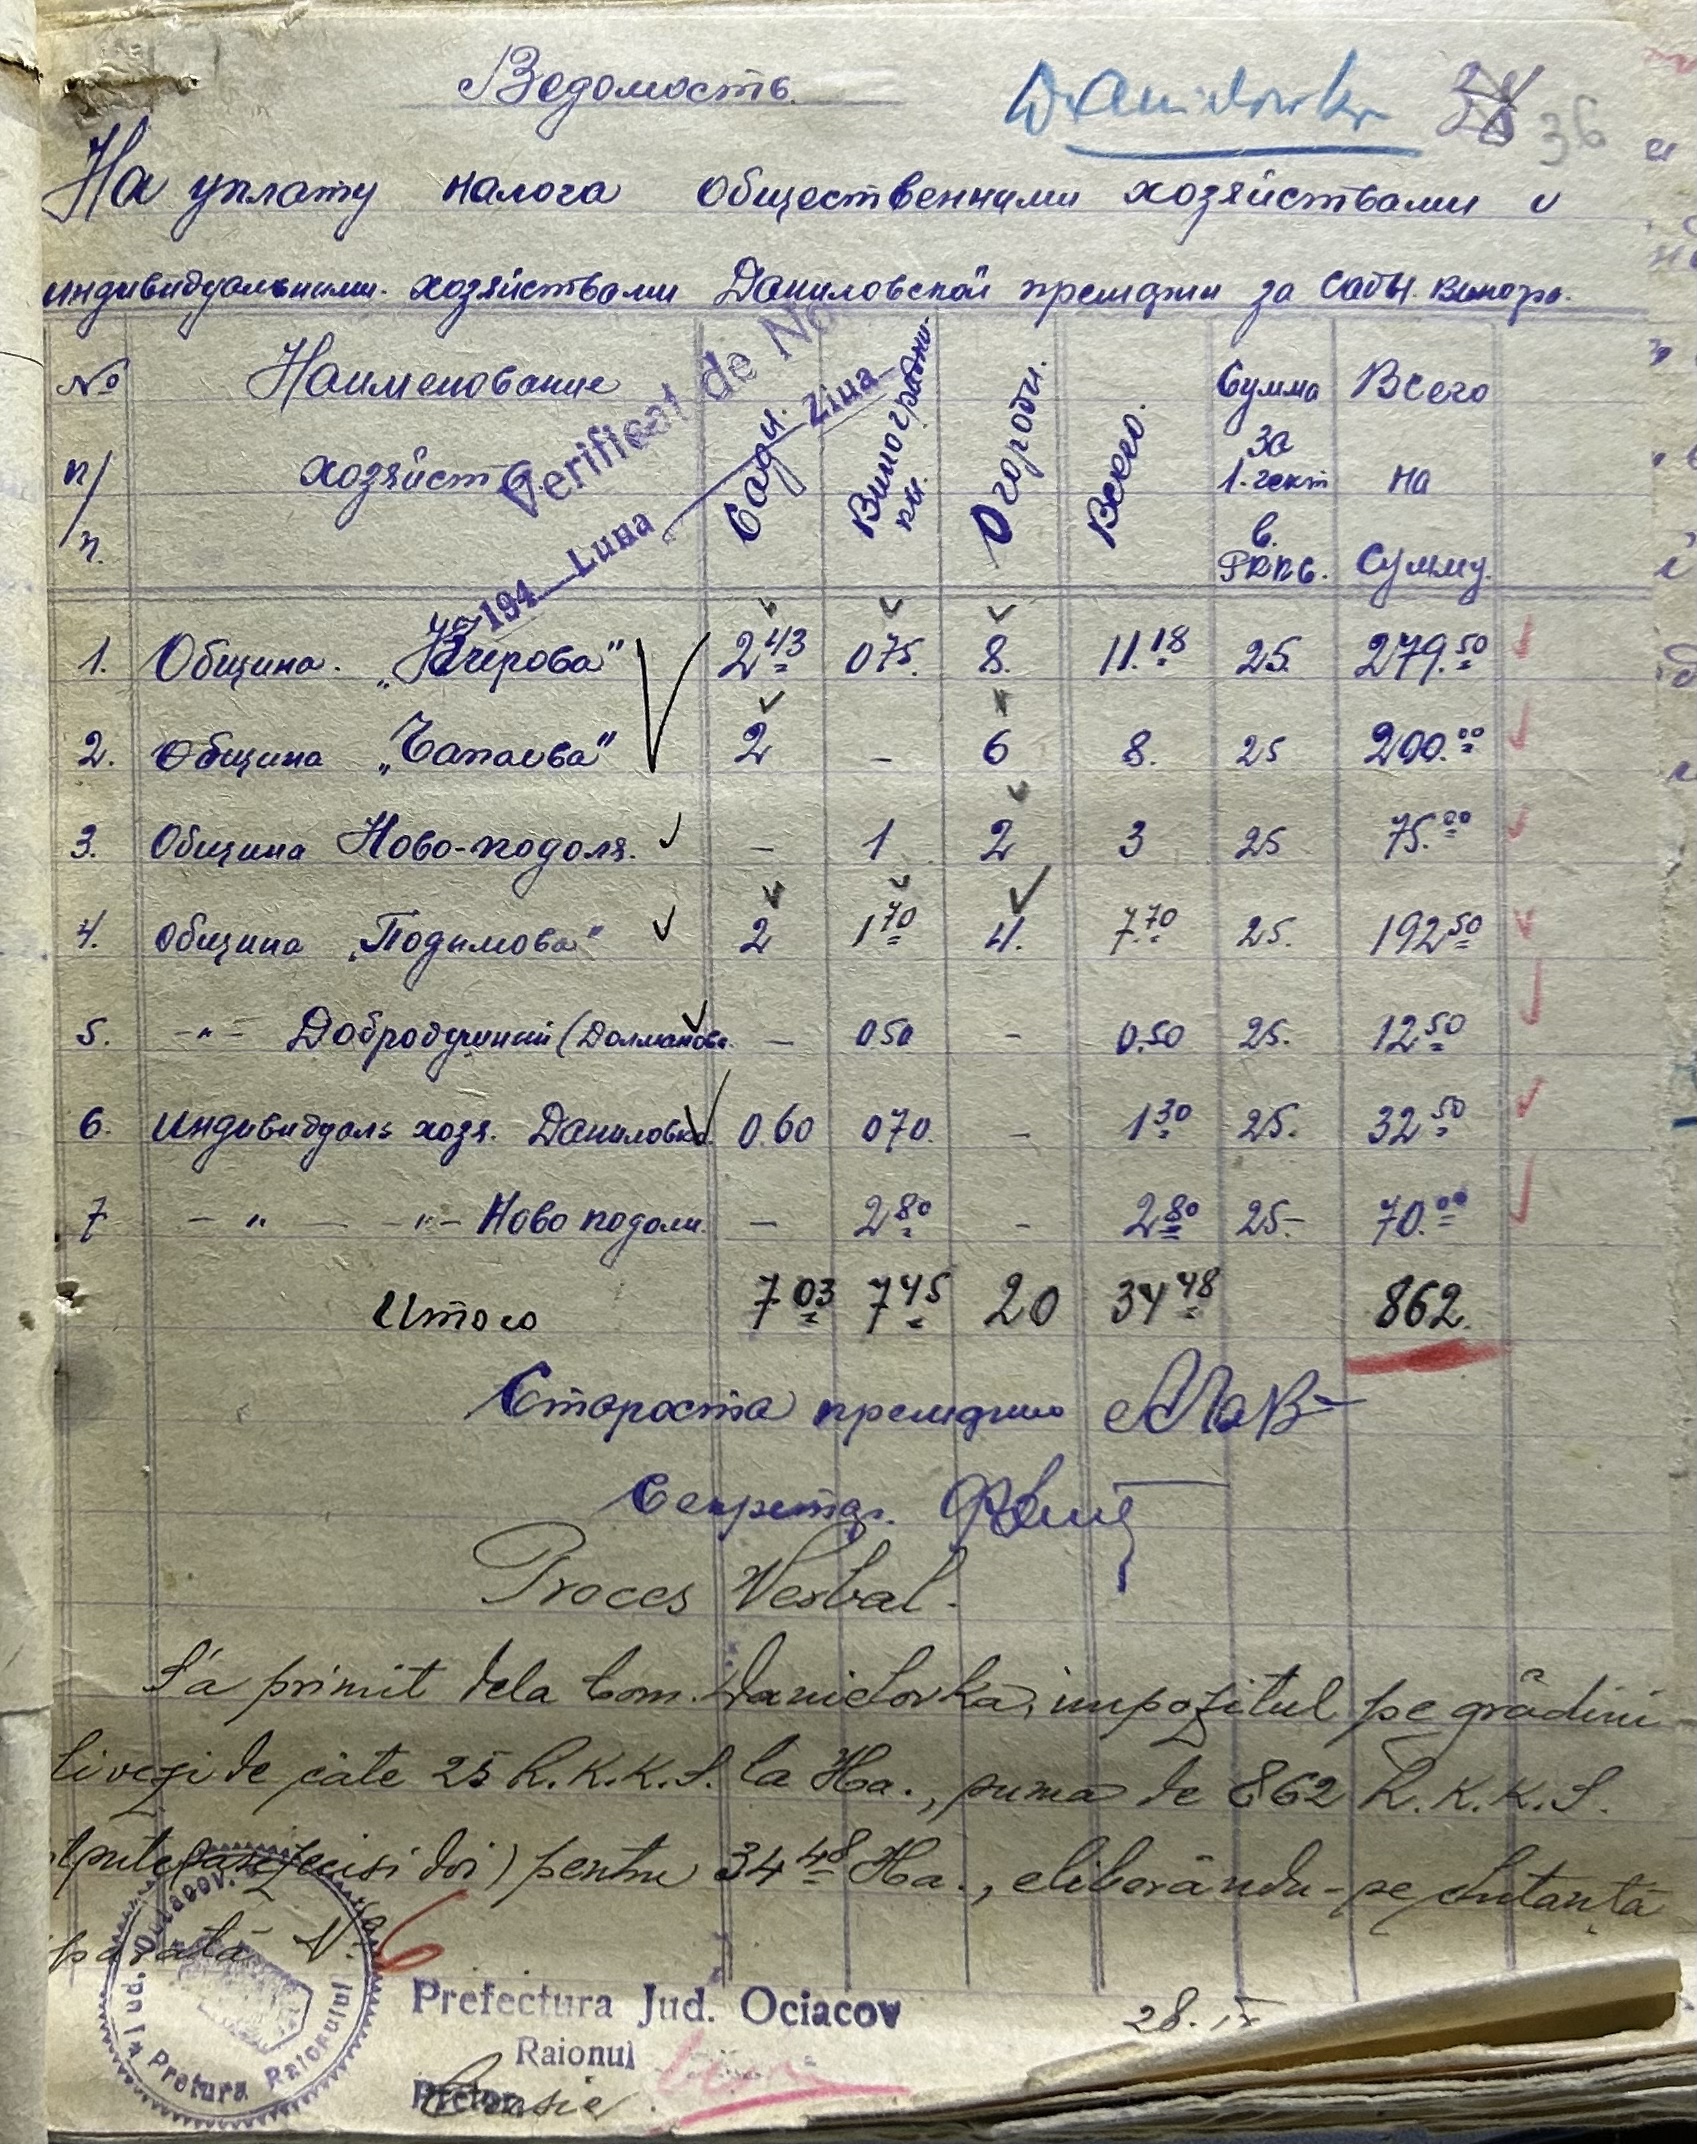 Ведомость
Danilowka 36
На уплату налога общественными хозяйствами и
индивидуальными хозяйствами Даниловской премэрии за сады. виногр.
№ п/п. Наименование хозяйств Сады. Виноградники. Огороды. Всего. Сумма за 1.гект в. Ркпв. Всего на сумму.
Verificat de No
194 Luna Ziua
1. Община. „Кирова" 2 43 075. 8. 11.18 25. 279.50
2. Община „Чапаева" 2 – 6 8. 25 200.00
3. Община Ново-подоля. – 1 2 3 25 75.00
4. Община „Подымова" 2 1 70 4. 7.70 25. 192 50
5. –„– Добродушный (Долманова – 0.50 – 0.50 25. 12 50
6. индивидуаль хозя. Даниловка. 0.60 070. – 1 30 25. 32 50
7 – „ – –„– Ново подоли. – 2 80 – 2 80 25– 70.00
Итого 7 03 7 45 20 34 48 862.
Староста премэрии
Секретар.
Proces Verbal.
S'a primit dela Com. Danielovka, impozitul pe grădini
livezi de câte 25 R.K.K.S. la Ha., suma de 862 R.K.K.S.
doi) pentru 34 48 Ha., eliberându-se chitanţa
No 6
Jud. Ociacov.
Pretura Raionului
Prefectura Jud. Ociacov
Raionul
Pretor
28. IX